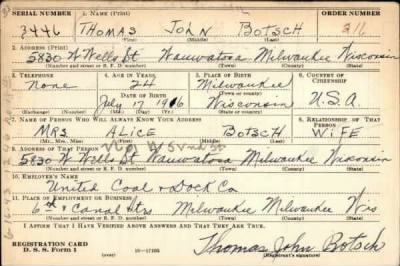 SERIAL NUMBER 1. NAME (Print) ORDER NUMBER
3446 THOMAS JOHN BOTSCH
(First) (Middle) (Last)
2. ADDRESS (Print)
5830 W Wells St Wauwatosa Milwaukee Wisconsin
(Number and street or R. F. D. number) (Town) (County) (State)
3. TELEPHONE 4. AGE IN YEARS 5. PLACE OF BIRTH 6. COUNTRY OF CITIZENSHIP
None 24 Milwaukee
DATE OF BIRTH (Town or county)
July 17 1916 Wisconsin U.S.A.
(Exchange) (Number) (Mo.) (Day) (Yr.) (State or country)
7. NAME OF PERSON WHO WILL ALWAYS KNOW YOUR ADDRESS 8. RELATIONSHIP OF THAT PERSON
MRS. ALICE BOTSCH WIFE
(Mr., Mrs., Miss) (First) (Middle) (Last)
9. ADDRESS OF THAT PERSON
5830 W Wells St Wauwatosa Milwaukee Wisconsin
(Number and street or R. F. D. number) (Town) (County) (State)
10. EMPLOYER'S NAME
United Coal + Dock Co
11. PLACE OF EMPLOYMENT OR BUSINESS
6th & Canal Sts Milwaukee Milwaukee Wis
(Number and street or R. F. D. number) (Town) (County) (State)
I AFFIRM THAT I HAVE VERIFIED ABOVE ANSWERS AND THAT THEY ARE TRUE.
REGISTRATION CARD
D. S. S. Form 1 (over) Thomas John Botsch
(Registrant's signature)